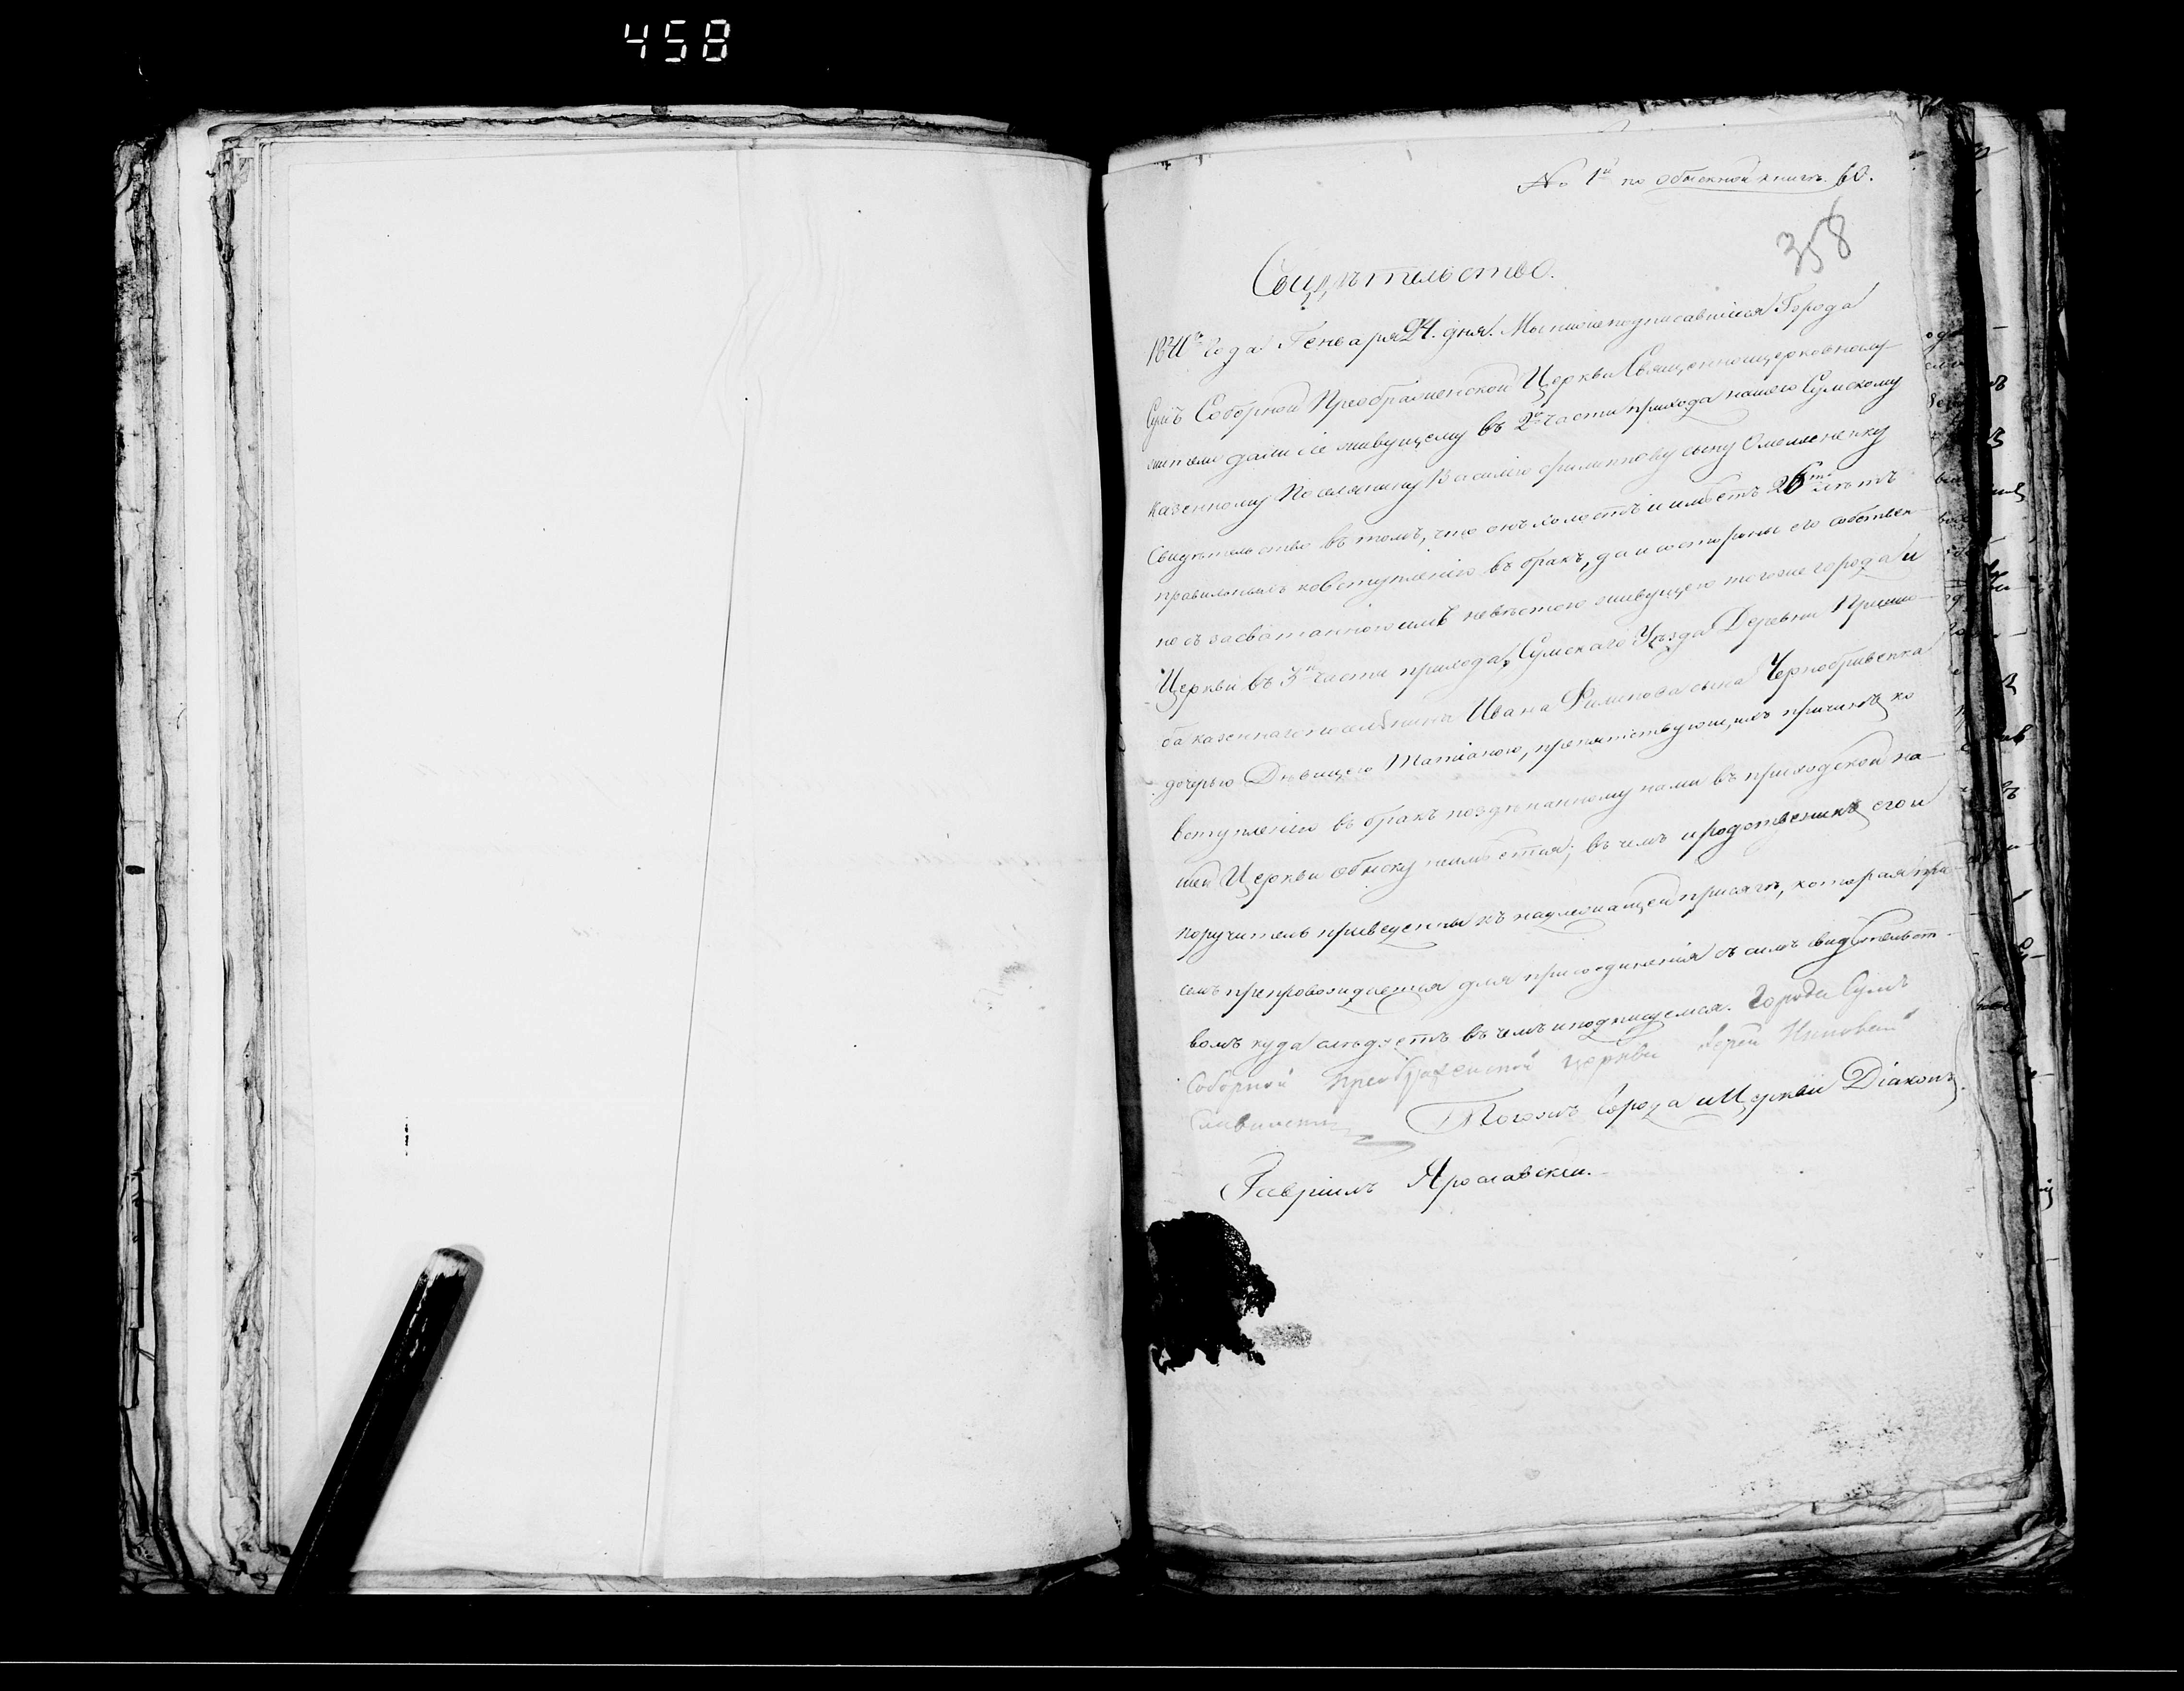 458
№ 1й по обыскной книгѣ. 60.
358
Свидѣтельство.
Года Генваря 24. дня. Мы нижеподписавшіеся Города
Сумъ Соборной Преображенской Церкви Священноцерковнослу
жители дали сіе живущему въ 2й части прихода нашего Сумскому
казенному Поселянину Василію сыну Омельяненку
Свидѣтельство въ томъ, что онъ холостъ и имѣетъ 26ть лѣтъ
правильныхъ ковступленію въ бракъ, да и состороны его собствен
но съ засватанною имъ невѣстою живущею тогоже города и
Церкви въ 3й части прихода, Сумскаго Уѣзда Деревни
ва казеннаго поселянина Ивана Филипова сына Чернобривенка
дочерью Дѣвицею Татіаною, препятствующихъ причинъ ко
вступленію въ бракъ поздѣланному нами въ приходской на
шей Церкви обыску неимѣется; въ чемъ и родственики его и
поручитель приведены къ надлежащей присягѣ, которая при
семъ препровождается для присоединенія съ симъ свидѣтельст
вомъ куда слѣдуетъ въ чемъ и подпишемся. Города Сумъ
Соборной Преображенской церкви Іерей
Тогожъ Города и Церкви Діаконъ
Гавріилъ Ярославскій.